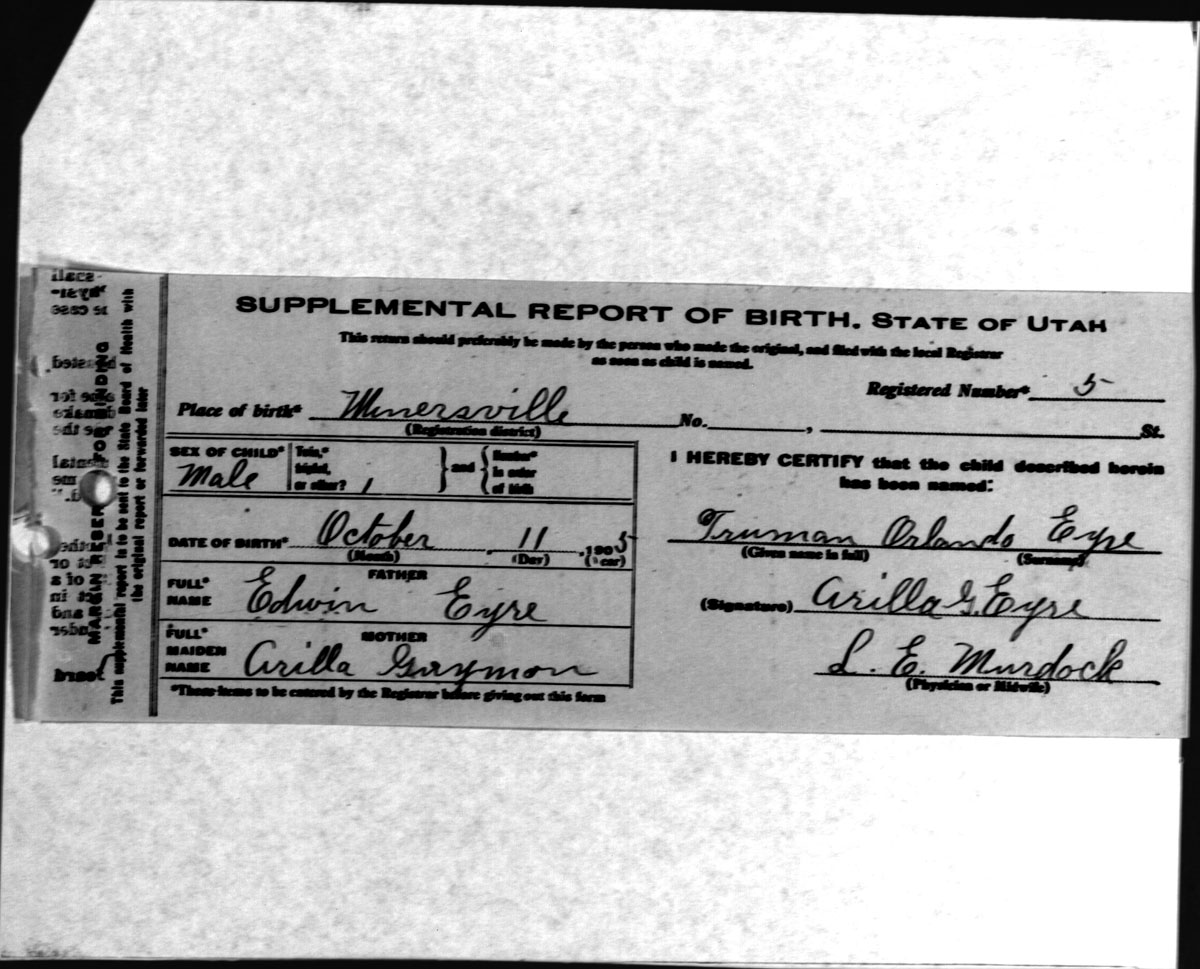 SUPPLEMENTAL REPORT OF BIRTH. STATE OF UTAH
This return should preferably be made by the person who made the original, and filed with the local Registrar
as soon as child is named.
Registered Number* 5
Place of birth* Minersville No. , St.
(Registration district)
SEX OF CHILD* Male
Twin,*
triplet,
or other? 1
and
Number*
in order
of birth
I HEREBY CERTIFY that the child described herein
has been named:
DATE OF BIRTH* October 11 .1905
(Month) (Day) (Year)
Truman Orlando Eyre
(Given name in full) (Surname)
FATHER
FULL*
NAME Edwin Eyre
(Signature) Arilla G. Eyre
MOTHER
FULL*
MAIDEN
NAME Arilla Guymon
L. E. Murdock
(Physician or Midwife)
*These items to be entered by the Registrar before giving out this form
MARGIN RESERVED FOR BINDING
This supplemental report is to be sent to the State Board of Health with
the original report or forwarded later